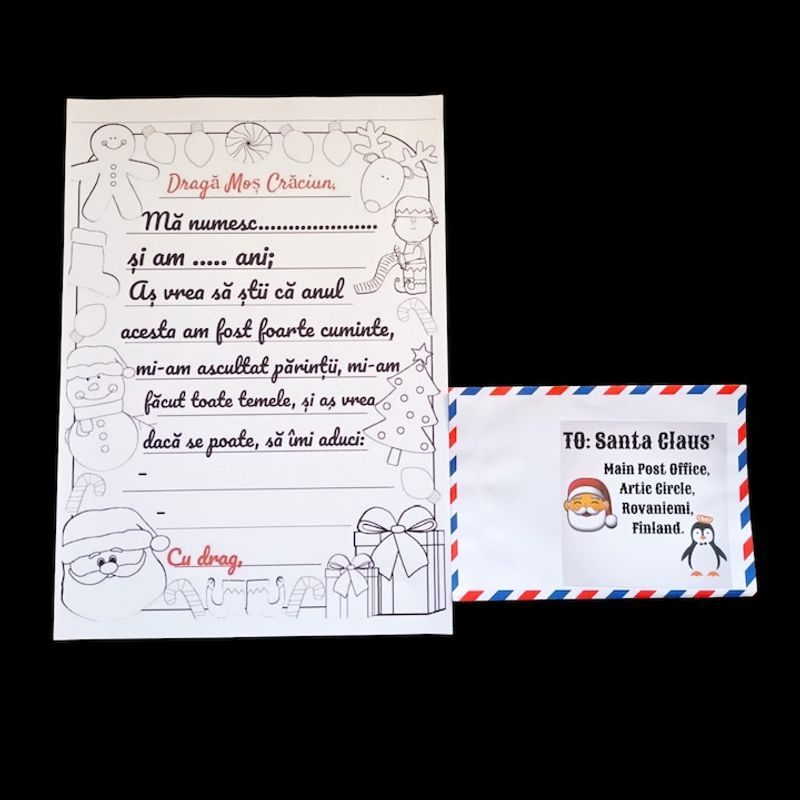 Dragă Moș Crăciun,
Mă numesc....................
și am ..... ani;
Aș vrea să știi că anul
acesta am fost foarte cuminte,
mi-am ascultat părinții, mi-am
făcut toate temele, și aș vrea
dacă se poate, să îmi aduci:
-
-
Cu drag,
TO: Santa Claus’
Main Post Office,
Artic Circle,
Rovaniemi,
Finland.